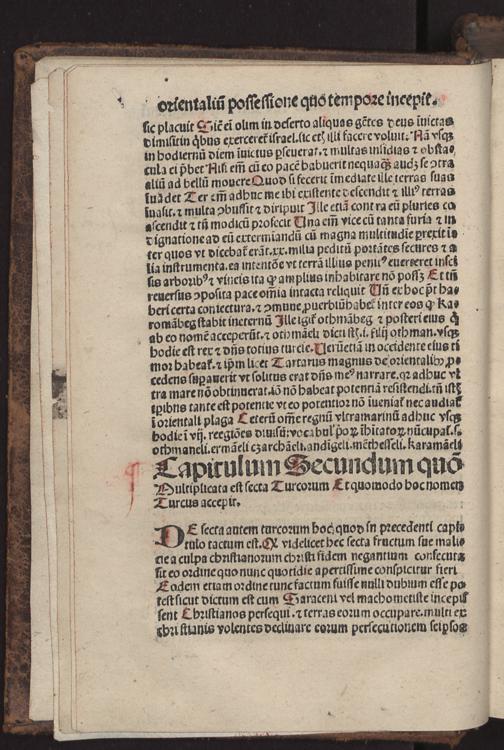 orientaliū possessione quo tēmpore incepit.
sic placuit Sic̄ eī olim in deserto aliquas gētes deus īuictas
dimisit in q̄bus exerceret israel. sic etꝫ illi facere voluit. Nā vsqꝫ
in hodiernū diem īuictus ꝑseuerat. ⁊ multas insidias ⁊ obsta
cula ei p̄bet Nis em̄ cū eo pacē habuerit nequaqꝫ audꝫ se ꝯtra
aliū ad bellū mouere Quod si fecerit īmediate ille terras suas
īuadet Ter em̄ adhuc me ibi existente descendit ⁊ illiꝰ terras
īuasit. ⁊ multa ꝯbussit ⁊ diripuit Ille etiā contra eū pluries co
ascendit ⁊ tn̄ modicū profecit Una em̄ vice cū tanta furia ⁊ in
dignatione ad eū exterminandū cū magna multitudīe ꝑrexit ī
ter quos vt dicebaꝛ̄ erāt. xx. milia peditū portātes secures ⁊ a
lia instrumenta. ea intentōe vt terrā illius penitꝰ euerteret inscī
sis arboribꝰ ⁊ vineis ita ꝙ amplius inhabitare nō possꝫ Et tn̄
reuersus ꝯposita pace om̄ia intacta reliquit Un̄ ex hoc pōt ha
beri certa coniectura. ⁊ ꝯmune ꝓuerbiū habeꝛ̄ inter eos ꝙ Ka
romābeg stabit ineternū Ille igiꝛ̄ othmābeg ⁊ posteri eius q̄
ab eo nomē acceperūt. ⁊ othmāeli dicti st̄. i. filij othman. vsqꝫ
hodie est rex ⁊ dn̄s totius turcie. Uerūetiā in occidente eius ti
mor habeaꝛ̄. ⁊ ip̄m licet Tartarus magnus de orientalibꝰ ꝓ
cedens supauerit vt solitus erat dn̄s meꝰ narrare. qꝛ adhuc vl
tra mare nō obtinuerat. iō nō habeat potentiā resistendi. tn̄ isti
ip̄ibus tante est potentie vt eo potentior nō īueniaꝛ̄ nec audiaꝛ̄
ī orientali plaga Ceterū om̄e regnū vltramarinū adhuc vsqꝫ
hodie ī vij. reegiōes diuisū: vocabulꝭ poꝝ īhitatoꝝ nūcupaꝛ̄. s.
othmaneli. ermaeli czarchāeli. andigeli. mēthesseli. Karamāeli
Capitulum Secundum quō
Multiplicata est secta Turcorum Et quomodo hoc nomen
Turcus accepit.
DE secta autem turcorum hoc quod in precedenti capi
tulo tactum est. Qꝫ videlicet hec secta fructum sue malic
cie a culpa christianorum christi fidem negantium consecuta
sit eo ordine quo nunc quotidie apertissime conspicitur fieri
Eodem etiam ordine tunc factum fuisse nulli dubium esse po
test sicut dictum est cum Saraceni vel machometiste incepis
sent Christianos persequi. ⁊ terras eorum occupare. multi ex
christianis volentes declinare eorum persecutionem seipsos